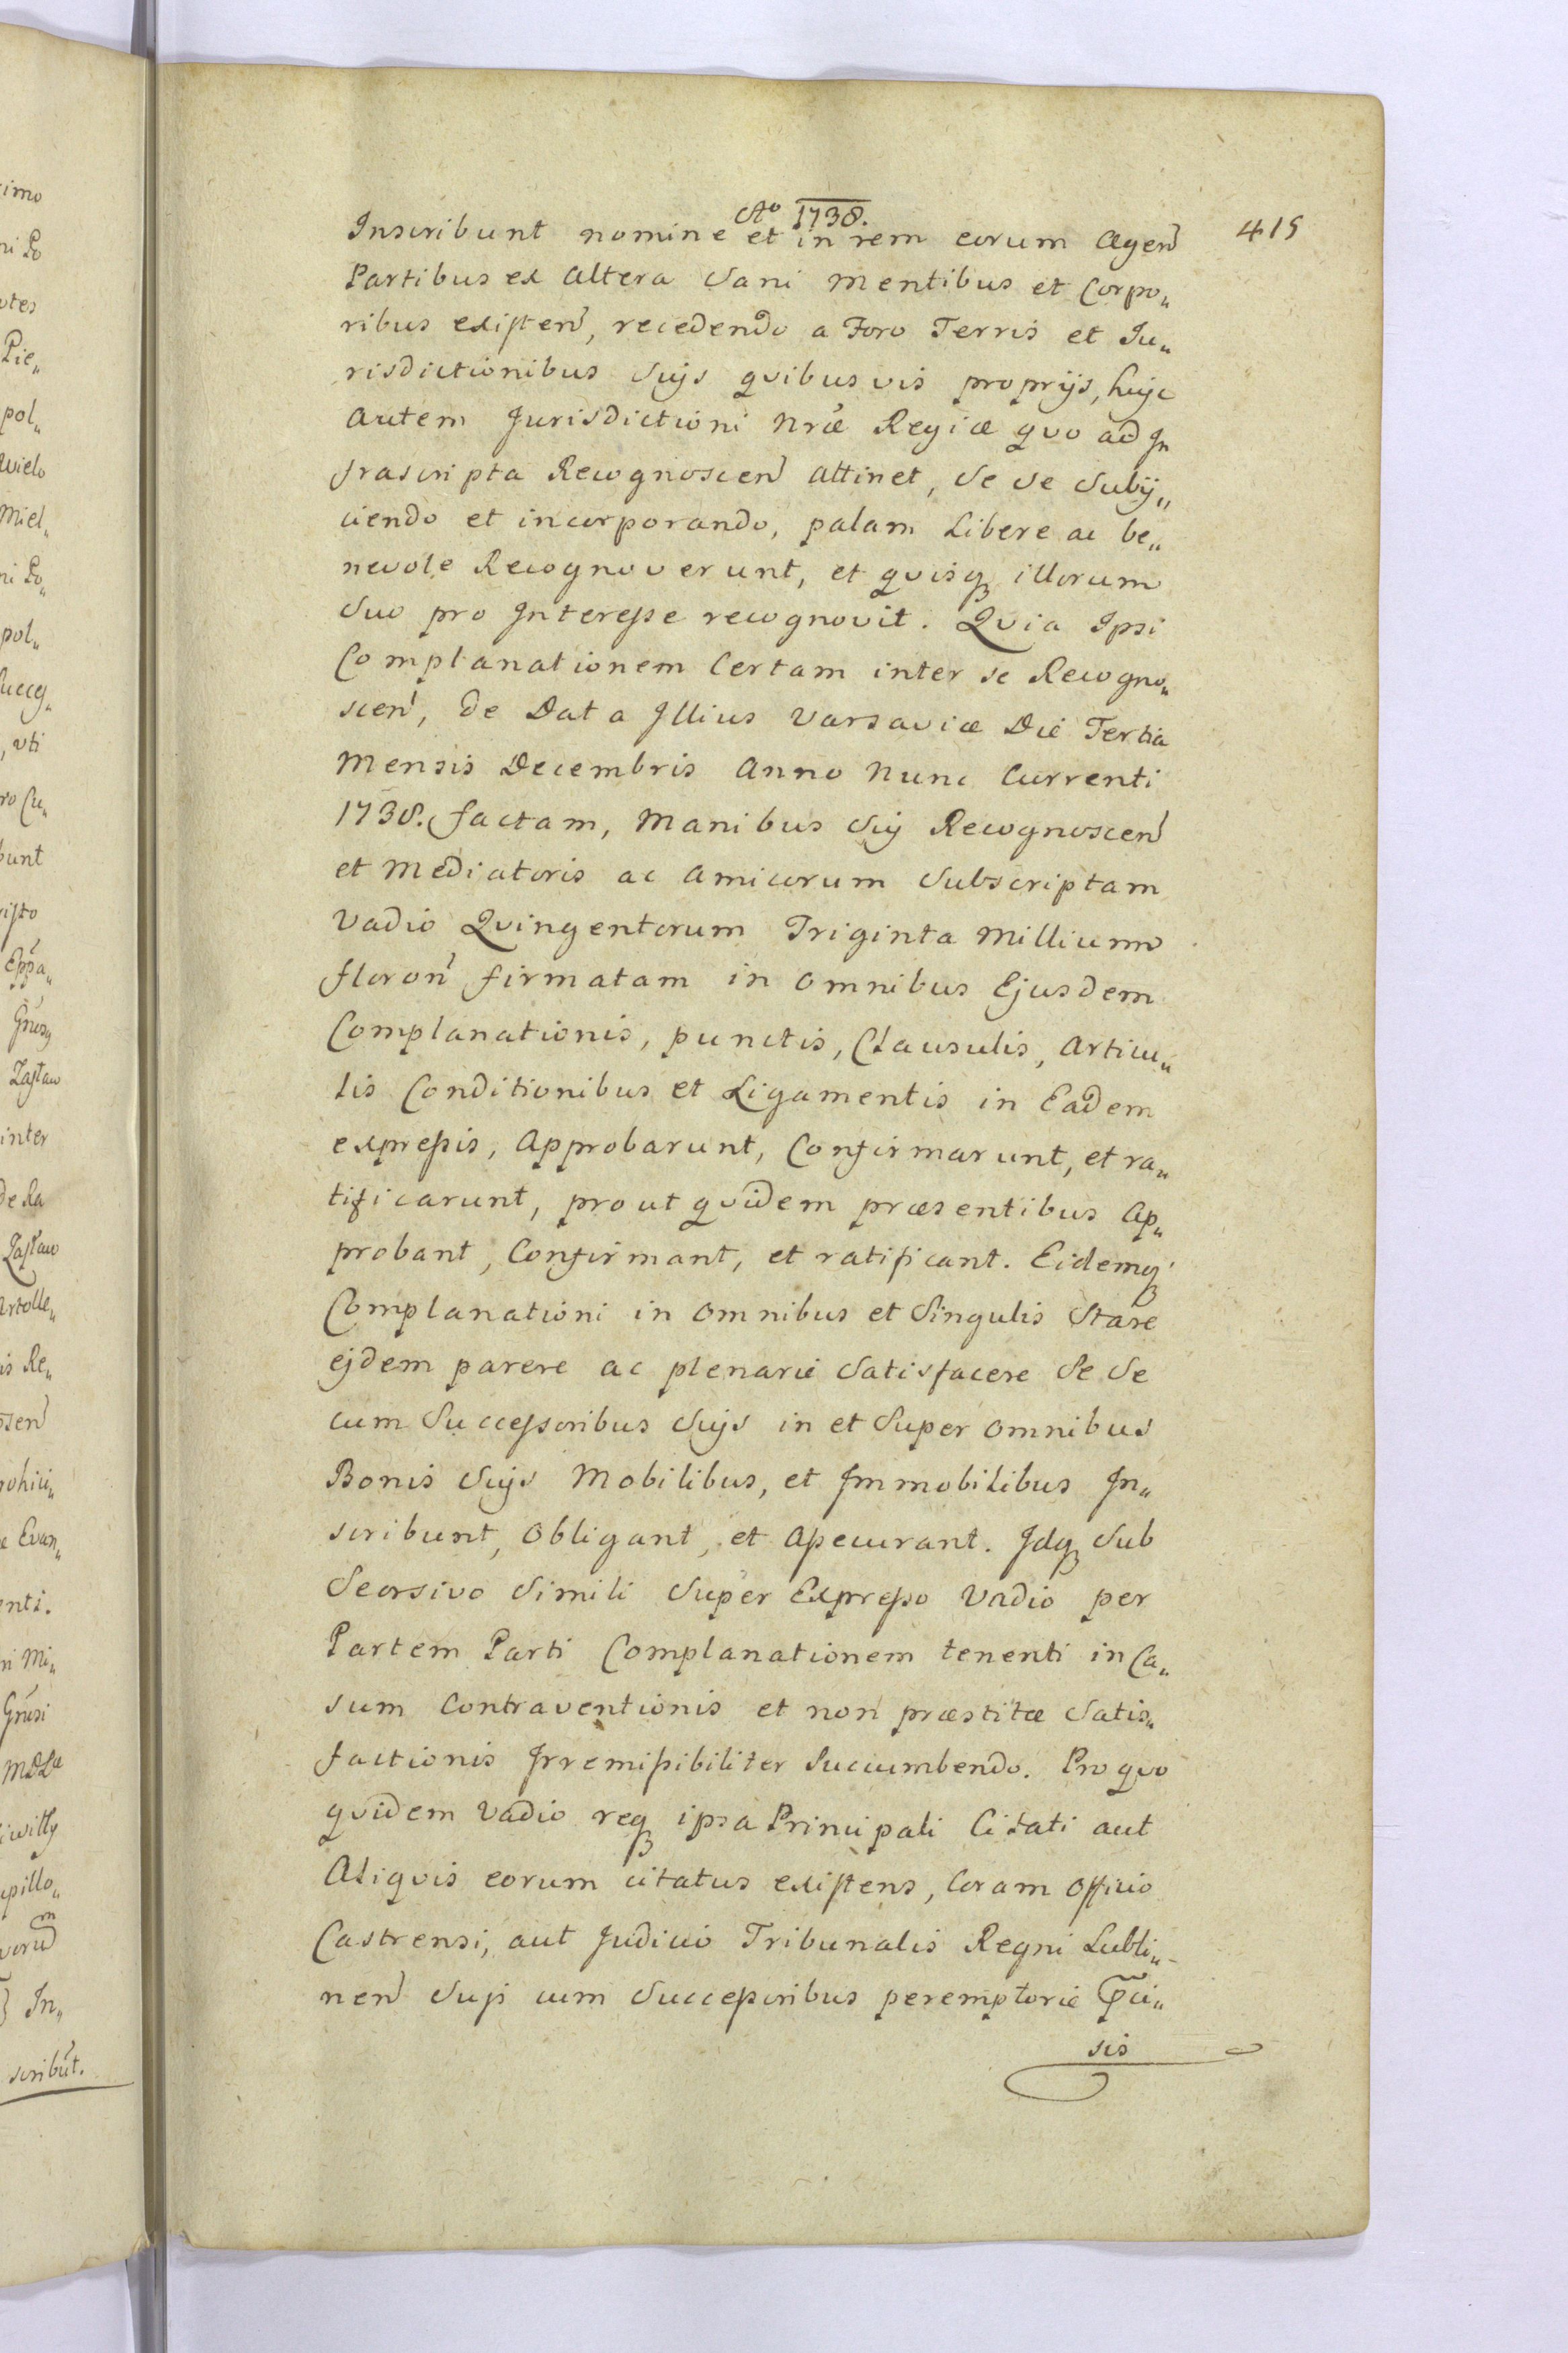 imo
ni Po
otes
Pie„
pol„
wielo
Miel„
ni Po„
pol„
, uti
ro Cu„
bunt
risto
Eppa„
Zasław
inter
de Ra
Zasław
artolle„
is Re„
e Evan„
enti.
n Mi„
Grusi
upillo„
In„
scribūt.
Aº 1738.
415
Inscribunt nomine et in rem eorum Agen̄
Partibus ex altera Sani mentibus et Corpo„
ribus existen̄, recedendo a Foro Terris et Ju„
risdictionibus Suijs quibusvis proprijs, huic
autem Jurisdictioni Nrae Regiae quo ad In
frascripta Recognoscen̄ attinet, Se se Subij„
ciendo et incorporando, palam Libere ac be„
nevole Recognoverunt, et quisq; illorum
Suo pro Interesse recognovit. Quia Ipsi
Complanationem Certam inter se Recogno„
scen̄, de Data Illius Varsaviae Die Tertia
Mensis Decembris Anno Nunc Currenti
1738. factam, Manibus Sui Recognoscen̄
et Mediatoris ac Amicorum Subscriptam
Vadio Quingentorum Triginta Millium
floron̄ firmatam in omnibus Ejusdem
Complanationis, punctis, Clausulis, Articu„
lis Conditionibus et Ligamentis in Eadem
expressis, Approbarunt, Confirmarunt, et ra„
tificarunt, prout quidem praesentibus Ap„
probant, Confirmant, et ratificant. Eidemq;
Complanationi in omnibus et Singulis Stare
ejdem parere ac plenarie Satisfacere Se Se
cum Successoribus Suijs in et Super omnibus
Bonis Suijs Mobilibus, et Immobilibus In„
scribunt, Obligant, et Assecurant. Idq; Sub
Seorsivo Simili Super Expresso Vadio per
Partem Parti Complanationem tenenti in Ca„
sum Contraventionis et non praestitae Satis„
factionis Irremissibiliter Succumbendo. Pro quo
quidem Vadio req; ipsa Principali Citati aut
Aliquis eorum citatus existens, Coram Officio
Castrensi, aut Judicio Tribunalis Regni Lubli„
nen̄ Suji cum Successoribus peremptorie P̃ci„
sis